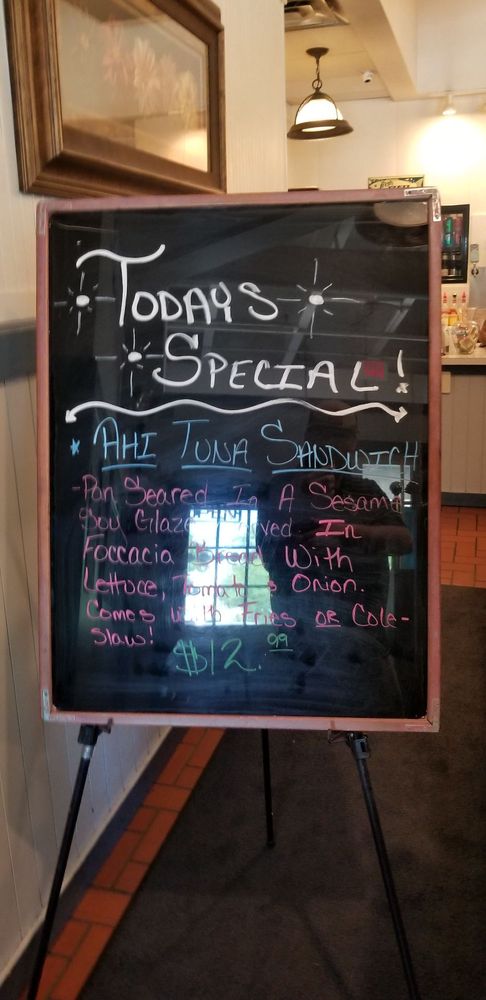 TODAYS
SPECIAL!
* AHI TUNA SANDWICH
-Pan Seared In A Sesame
Soy Glaze Served In
Foccacia Bread With
Lettuce, Tomato & Onion.
Comes With Fries OR Cole-
Slaw!
$12.99